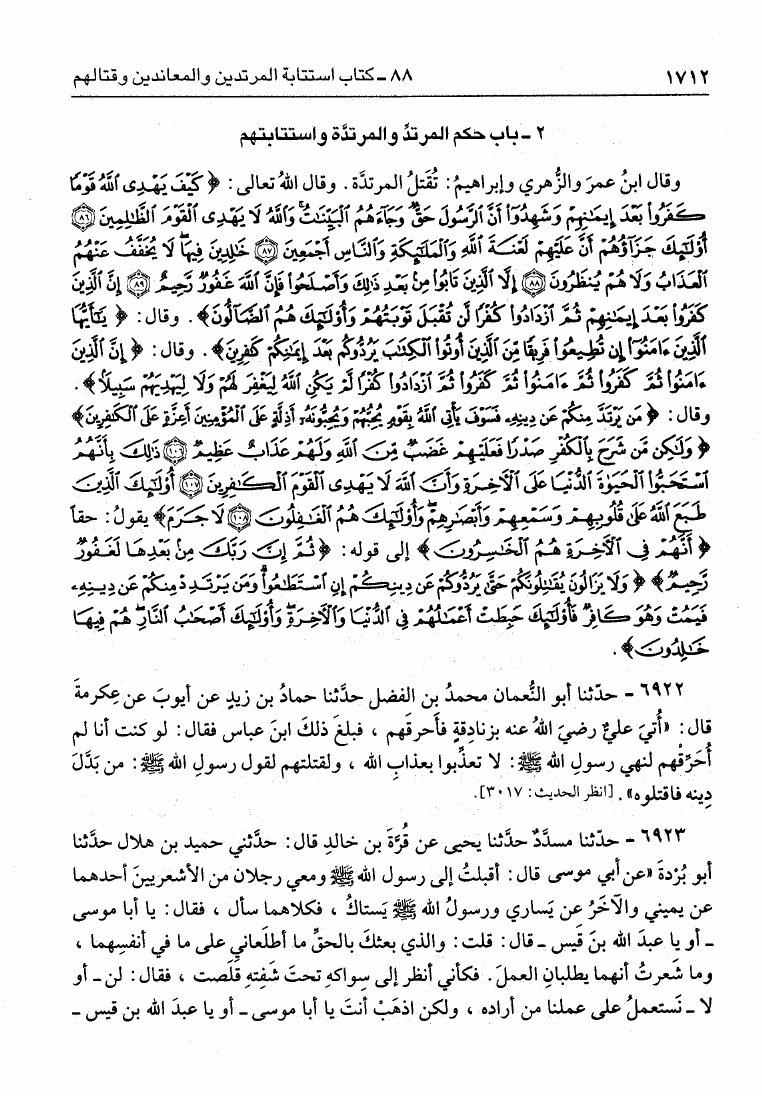 ١٧١٢ ٨٨ ـ كتاب استتابة المرتدين والمعاندين وقتالهم
٢ ـ باب حكم المرتدِّ والمرتدَّة واستتابتهم
وقال ابنُ عمرَ والزُّهري وإبراهيمُ: تُقتَلُ المرتدَّة. وقال اللهُ تعالى: ﴿كَيْفَ يَهْدِى اللَّهُ قَوْمًا
كَفَرُوا بَعْدَ إِيمَٰنِهِمْ وَشَهِدُوٓا أَنَّ الرَّسُولَ حَقٌّ وَجَآءَهُمُ الْبَيِّنَٰتُ وَاللَّهُ لَا يَهْدِى الْقَوْمَ الظَّٰلِمِينَ ﴿٨٦﴾
أُو۟لَٰٓئِكَ جَزَآؤُهُمْ أَنَّ عَلَيْهِمْ لَعْنَةَ اللَّهِ وَالْمَلَٰٓئِكَةِ وَالنَّاسِ أَجْمَعِينَ ﴿٨٧﴾ خَٰلِدِينَ فِيهَا لَا يُخَفَّفُ عَنْهُمُ
الْعَذَابُ وَلَا هُمْ يُنظَرُونَ ﴿٨٨﴾ إِلَّا الَّذِينَ تَابُوا مِنۢ بَعْدِ ذَٰلِكَ وَأَصْلَحُوا فَإِنَّ اللَّهَ غَفُورٌ رَّحِيمٌ ﴿٨٩﴾ إِنَّ الَّذِينَ
كَفَرُوا بَعْدَ إِيمَٰنِهِمْ ثُمَّ ازْدَادُوا كُفْرًا لَّن تُقْبَلَ تَوْبَتُهُمْ وَأُو۟لَٰٓئِكَ هُمُ الضَّآلُّونَ﴾. وقال: ﴿يَٰٓأَيُّهَا
الَّذِينَ ءَامَنُوٓا إِن تُطِيعُوا فَرِيقًا مِّنَ الَّذِينَ أُوتُوا الْكِتَٰبَ يَرُدُّوكُم بَعْدَ إِيمَٰنِكُمْ كَٰفِرِينَ﴾. وقال: ﴿إِنَّ الَّذِينَ
ءَامَنُوا ثُمَّ كَفَرُوا ثُمَّ ءَامَنُوا ثُمَّ كَفَرُوا ثُمَّ ازْدَادُوا كُفْرًا لَّمْ يَكُنِ اللَّهُ لِيَغْفِرَ لَهُمْ وَلَا لِيَهْدِيَهُمْ سَبِيلًا﴾.
وقال: ﴿مَن يَرْتَدَّ مِنكُمْ عَن دِينِهِۦ فَسَوْفَ يَأْتِى اللَّهُ بِقَوْمٍ يُحِبُّهُمْ وَيُحِبُّونَهُۥٓ أَذِلَّةٍ عَلَى الْمُؤْمِنِينَ أَعِزَّةٍ عَلَى الْكَٰفِرِينَ﴾
﴿وَلَٰكِن مَّن شَرَحَ بِالْكُفْرِ صَدْرًا فَعَلَيْهِمْ غَضَبٌ مِّنَ اللَّهِ وَلَهُمْ عَذَابٌ عَظِيمٌ ﴿١٠٦﴾ ذَٰلِكَ بِأَنَّهُمُ
اسْتَحَبُّوا الْحَيَوٰةَ الدُّنْيَا عَلَى الْآخِرَةِ وَأَنَّ اللَّهَ لَا يَهْدِى الْقَوْمَ الْكَٰفِرِينَ ﴿١٠٧﴾ أُو۟لَٰٓئِكَ الَّذِينَ
طَبَعَ اللَّهُ عَلَىٰ قُلُوبِهِمْ وَسَمْعِهِمْ وَأَبْصَٰرِهِمْ وَأُو۟لَٰٓئِكَ هُمُ الْغَٰفِلُونَ ﴿١٠٨﴾ لَا جَرَمَ﴾ يقولُ: حقاً
﴿أَنَّهُمْ فِى الْآخِرَةِ هُمُ الْخَٰسِرُونَ﴾ إلى قوله: ﴿ثُمَّ إِنَّ رَبَّكَ مِنۢ بَعْدِهَا لَغَفُورٌ
رَّحِيمٌ﴾ ﴿وَلَا يَزَالُونَ يُقَٰتِلُونَكُمْ حَتَّىٰ يَرُدُّوكُمْ عَن دِينِكُمْ إِنِ اسْتَطَٰعُوا وَمَن يَرْتَدِدْ مِنكُمْ عَن دِينِهِۦ
فَيَمُتْ وَهُوَ كَافِرٌ فَأُو۟لَٰٓئِكَ حَبِطَتْ أَعْمَٰلُهُمْ فِى الدُّنْيَا وَالْآخِرَةِ وَأُو۟لَٰٓئِكَ أَصْحَٰبُ النَّارِ هُمْ فِيهَا
خَٰلِدُونَ﴾.
٦٩٢٢ ـ حدّثنا أبو النُّعمان محمدُ بن الفضل حدَّثنا حمادُ بن زيدٍ عن أيوبَ عن عِكرمةَ
قال: «أُتيَ عليٌّ رضيَ اللهُ عنه بزنادِقةٍ فأحرقَهم، فبلغَ ذلكَ ابنَ عباس فقال: لو كنت أنا لم
أُحَرِّقْهم لنهي رسولِ الله ﷺ: لا تعذِّبوا بعذابِ الله، ولقتلتهم لقول رسولِ الله ﷺ: من بَدَّلَ
دِينه فاقتلوه». [انظر الحديث: ٣٠١٧].
٦٩٢٣ ـ حدّثنا مسدَّدٌ حدَّثنا يحيى عن قُرَّةَ بن خالدٍ قال: حدَّثني حميد بن هلال حدَّثنا
أبو بُردةَ «عن أبي موسى قال: أقبلتُ إلى رسول الله ﷺ ومعي رجلان من الأشعريينَ أحدهما
عن يميني والآخَرُ عن يَساري ورسولُ الله ﷺ يَستاكُ، فكلاهما سأل، فقال: يا أبا موسى
ـ أو يا عبدَ الله بنَ قَيس ـ قال: قلت: والذي بعثكَ بالحقِّ ما أطلَعاني على ما في أنفسِهما،
وما شَعرتُ أنهما يطلبانِ العملَ. فكأني أنظر إلى سِواكهِ تحتَ شَفتِهِ قَلَصت، فقال: لن ـ أو
لا ـ نَستعملُ على عملنا من أراده، ولكن اذهَبْ أنتَ يا أبا موسى ـ أو يا عبدَ الله بن قيس ـ